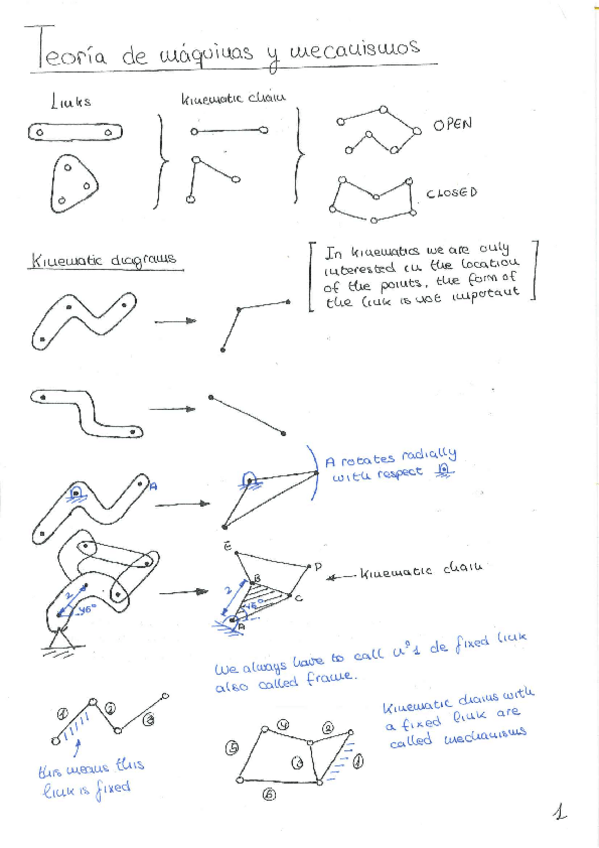 Teoría de máquinas y mecanismos
Links
Kinematic chain
OPEN
CLOSED
Kinematic diagrams
In kinematics we are only
interested in the location
of the points, the form of
the link is not important
A rotates radially
with respect
A
E
D
B
C
A
2
45°
2
45°
Kinematic chain
We always have to call nº1 de fixed link
also called frame.
1
2
3
this means this
link is fixed
4
2
5
3
1
6
Kinematic chains with
a fixed link are
called mechanisms
1